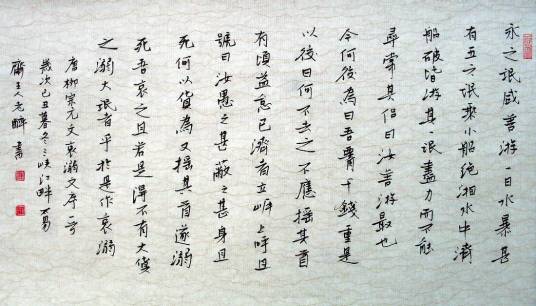 永之氓咸善游一日水暴甚
有五六氓乘小船绝湘水中濟
船破皆游其一氓盡力而不能
尋常其侣曰汝善游最也
今何後為曰吾腰千錢重是
以後曰何不去之不應摇其首
有頃益怠已濟者立岸上呼且
號曰汝愚之甚蔽之甚身且
死何以貨為又摇其首遂溺
死吾哀之且若是得不有大貨
之溺大氓者乎於是作哀溺
唐柳宗元文哀溺文序一首
歲次己丑暮冬之峡江畔 易
齋主人老醉書